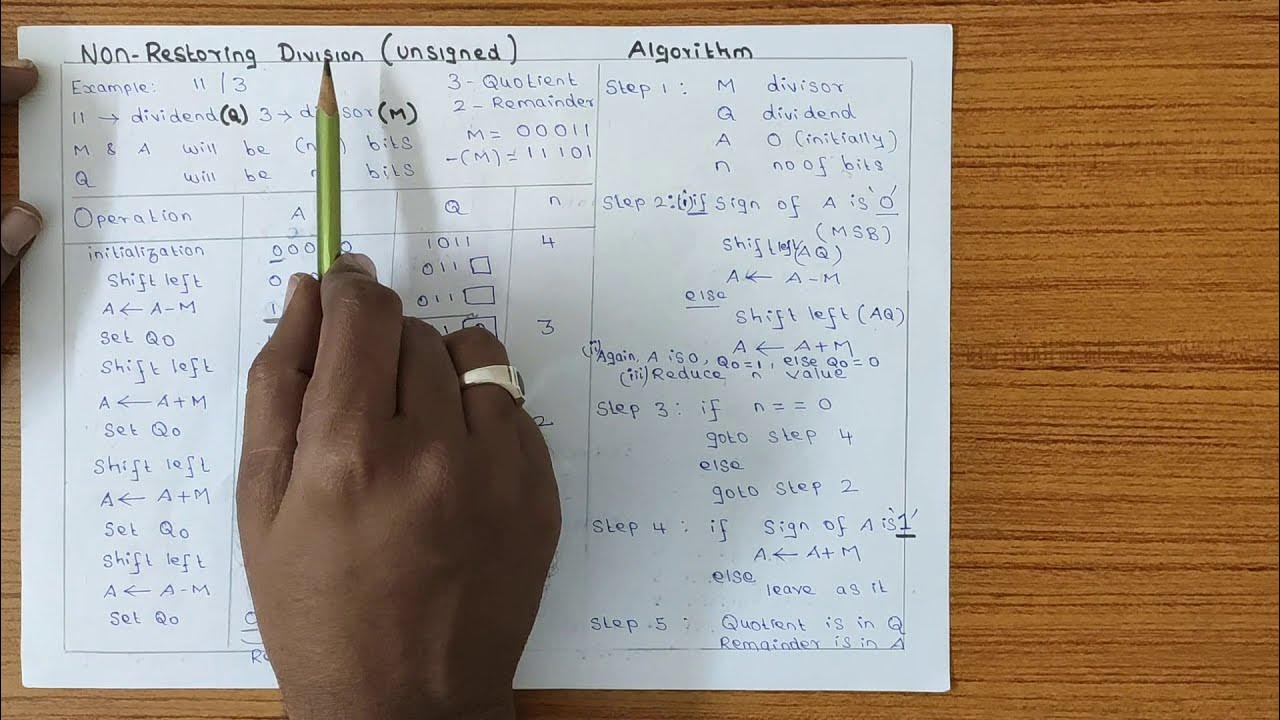 Non-Restoring Division (unsigned)
Example: 11 / 3
3 - Quotient
2 - Remainder
11 → dividend (Q) 3 → divisor (M)
M = 00011
-(M) = 11101
M & A will be bits
Q will be bits
Operation A Q n
initialization 000 0 1011 4
Shift left 0 011
A ← A-M 1 011
Set Q0 3
Shift left
A ← A+M
Set Q0 2
Shift left
A ← A+M
Set Q0
Shift left
A ← A-M
Set Q0 0
Algorithm
Step 1 : M divisor
Q dividend
A 0 (initially)
n no of bits
Step 2: (i) if Sign of A is '0'
(MSB)
Shift left (AQ)
A ← A-M
else
Shift left (AQ)
A ← A+M
(ii) Again, A is 0, Q0=1, else Q0=0
(iii) Reduce n value
Step 3 : if n == 0
goto step 4
else
goto step 2
Step 4 : if Sign of A is '1'
A ← A+M
else
leave as it
Step 5 : Quotient is in Q
Remainder is in A